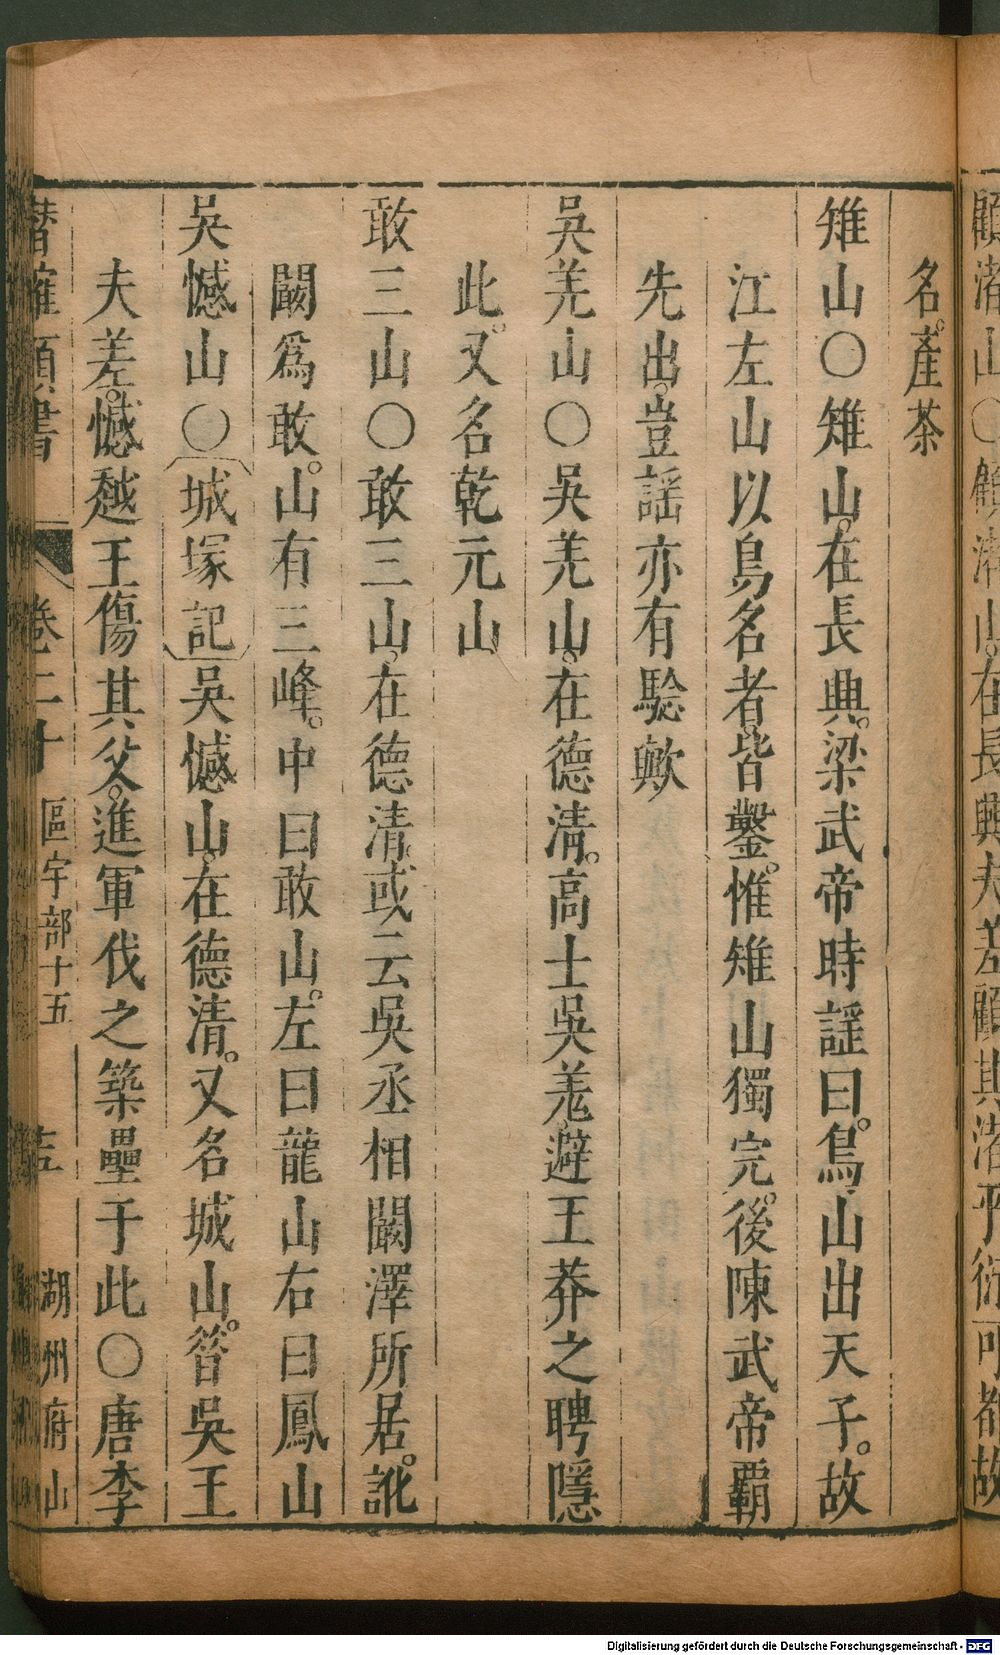 顧渚山○顧渚山。在長興夫差顧其渚平衍可都故
名。產茶
雉山○雉山。在長興。梁武帝時謡曰。鳥山出天子。故
江左山以鳥名者。皆鑿。惟雉山獨完。後陳武帝霸
先出。豈謡亦有騐歟
吳羌山○吳羌山。在德清。高士吳羌。避王莽之聘隱
此。又名乾元山
敢三山○敢三山。在德清。或云吳丞相闞澤所居。訛
闞爲敢。山有三峰。中曰敢山。左曰龍山右曰鳳山
吳憾山○〔城塚記〕吳憾山。在德清。又名城山。昝吳王
夫差。憾越王傷其父。進軍伐之築壘于此○唐李
潛確類書 卷二十 區宇部十五 十五 湖州府山
Digitalisierung gefördert durch die Deutsche Forschungsgemeinschaft - DFG